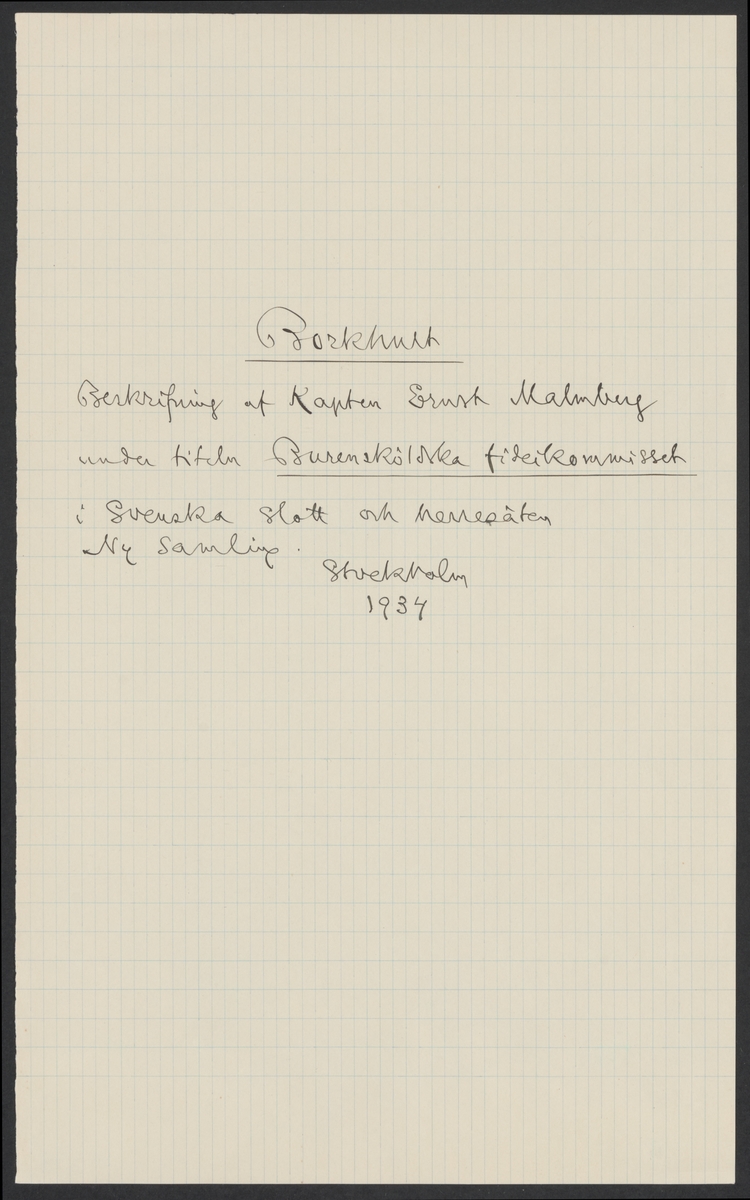 Borkhult
Beskrifning af Kapten Ernst Malmberg
under titeln Burensköldska fideikommisset
i Svenska slott och herresäten
Ny Samling.
Stockholm
1934